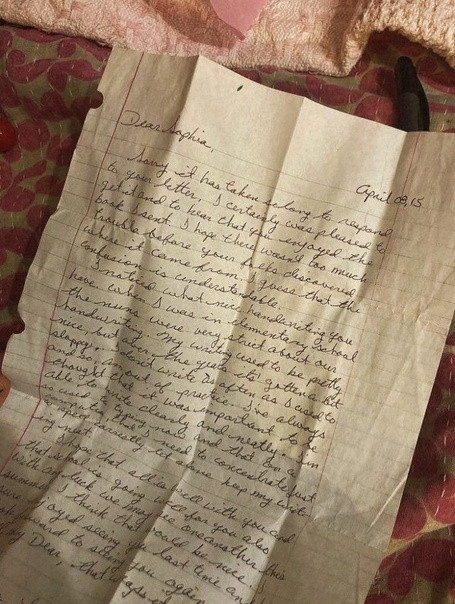 Dear Sophia,
April 09, 15
Sorry it has taken so long to respond
to your letter, I certainly was pleased to
get it and to hear that you enjoyed the
book I sent. I hope there wasn't too much
trouble before your folks discovered
where it came from. I guess that the
confusion is understandable.
I noticed what nice handwriting you
have. When I was in elementary school
the nuns were very strict about our
handwriting. My writing used to be pretty
nice, but over the years it's gotten a bit
sloppy. I don't write as often as I used to
and so, am out of practice. I've always
thought that it was important to be
able to write clearly and neatly. I am
so used to typing now and that on a
computer, that I need to concentrate just
to
I hope that all is well with you and
that school is going well for you also.
With luck we may see one another this
summer. I think that would be nice. I
sure enjoyed seeing you last time and
look forward to seeing you again
my Dear, that